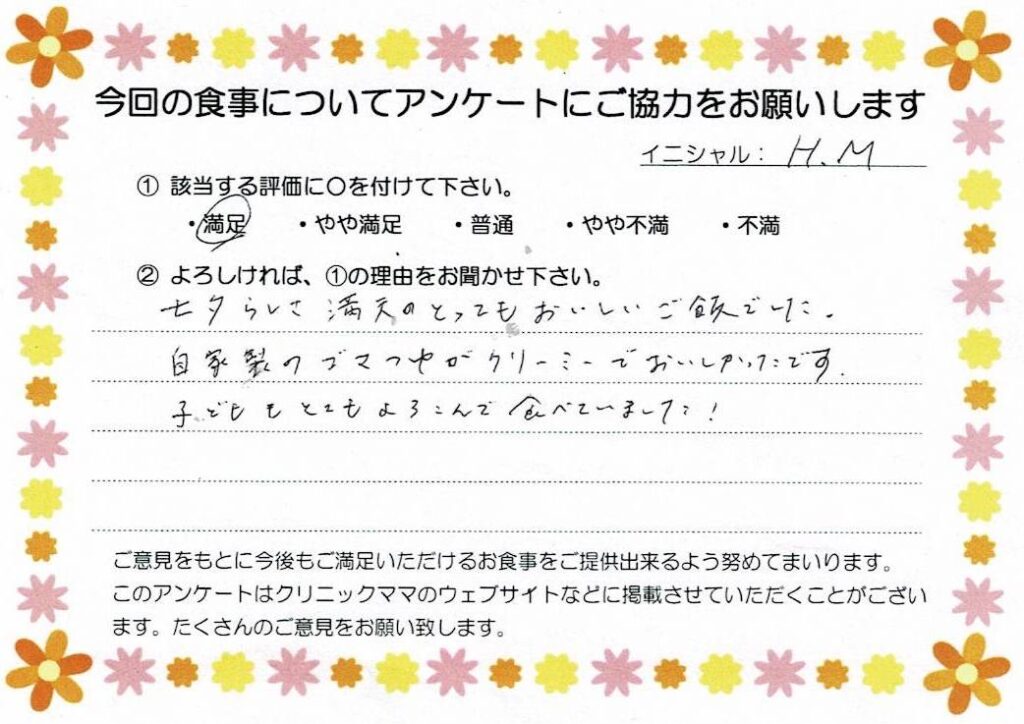 今回の食事についてアンケートにご協力をお願いします
イニシャル： H.M
① 該当する評価に〇を付けて下さい。
・満足 ・やや満足 ・普通 ・やや不満 ・不満
② よろしければ、①の理由をお聞かせ下さい。
七夕らしさ満天のとってもおいしいご飯でした。
自家製のゴマつゆがクリーミーでおいしかったです。
子どももとてもよろこんで食べていました！
ご意見をもとに今後もご満足いただけるお食事をご提供出来るよう努めてまいります。
このアンケートはクリニックママのウェブサイトなどに掲載させていただくことがござい
ます。たくさんのご意見をお願い致します。